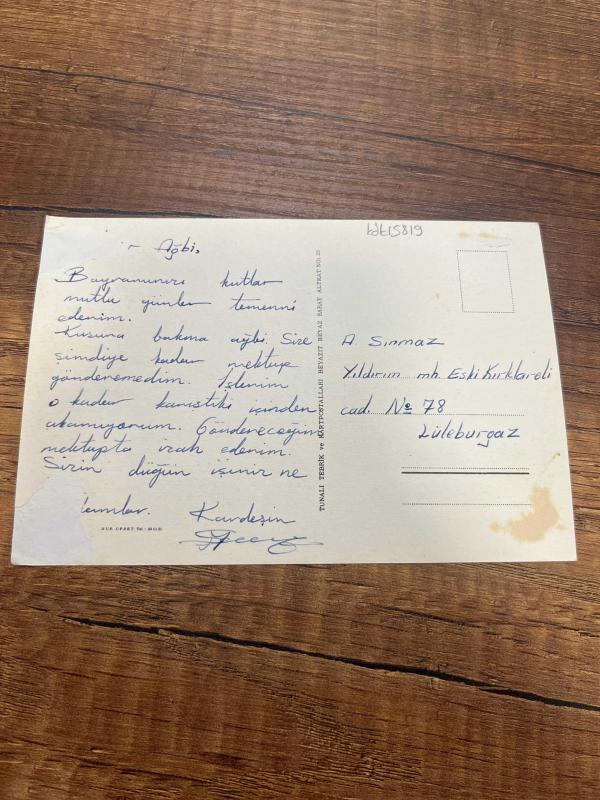 Ağbi,
Bayramınızı kutlar
mutlu günler temenni
ederim.
Kusura bakma ağbi. Size
şimdiye kadar mektup
gönderemedim. İşlerim
o kadar karıştıki içinden
çıkamıyorum. Göndereceğim
mektupta izah ederim.
Sizin düğün işiniz ne
Kardeşin
NUR OFSET Tel.:
TUNALI TEBRİK ve KARTPOSTALLARI BEYAZIT BEYAZ SARAY ALTKAT NO. 25
bdt15819
A. Sınmaz
Yıldırım mh. Eski Kırklareli
cad. No 78
Lüleburgaz